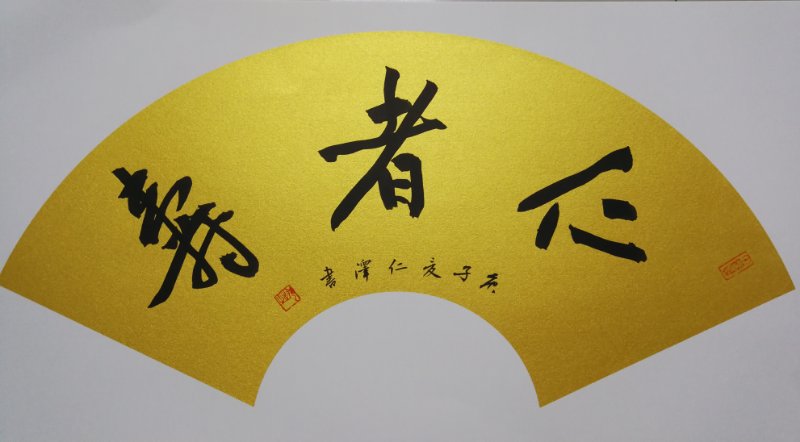 仁者壽
庚子夏仁澤書